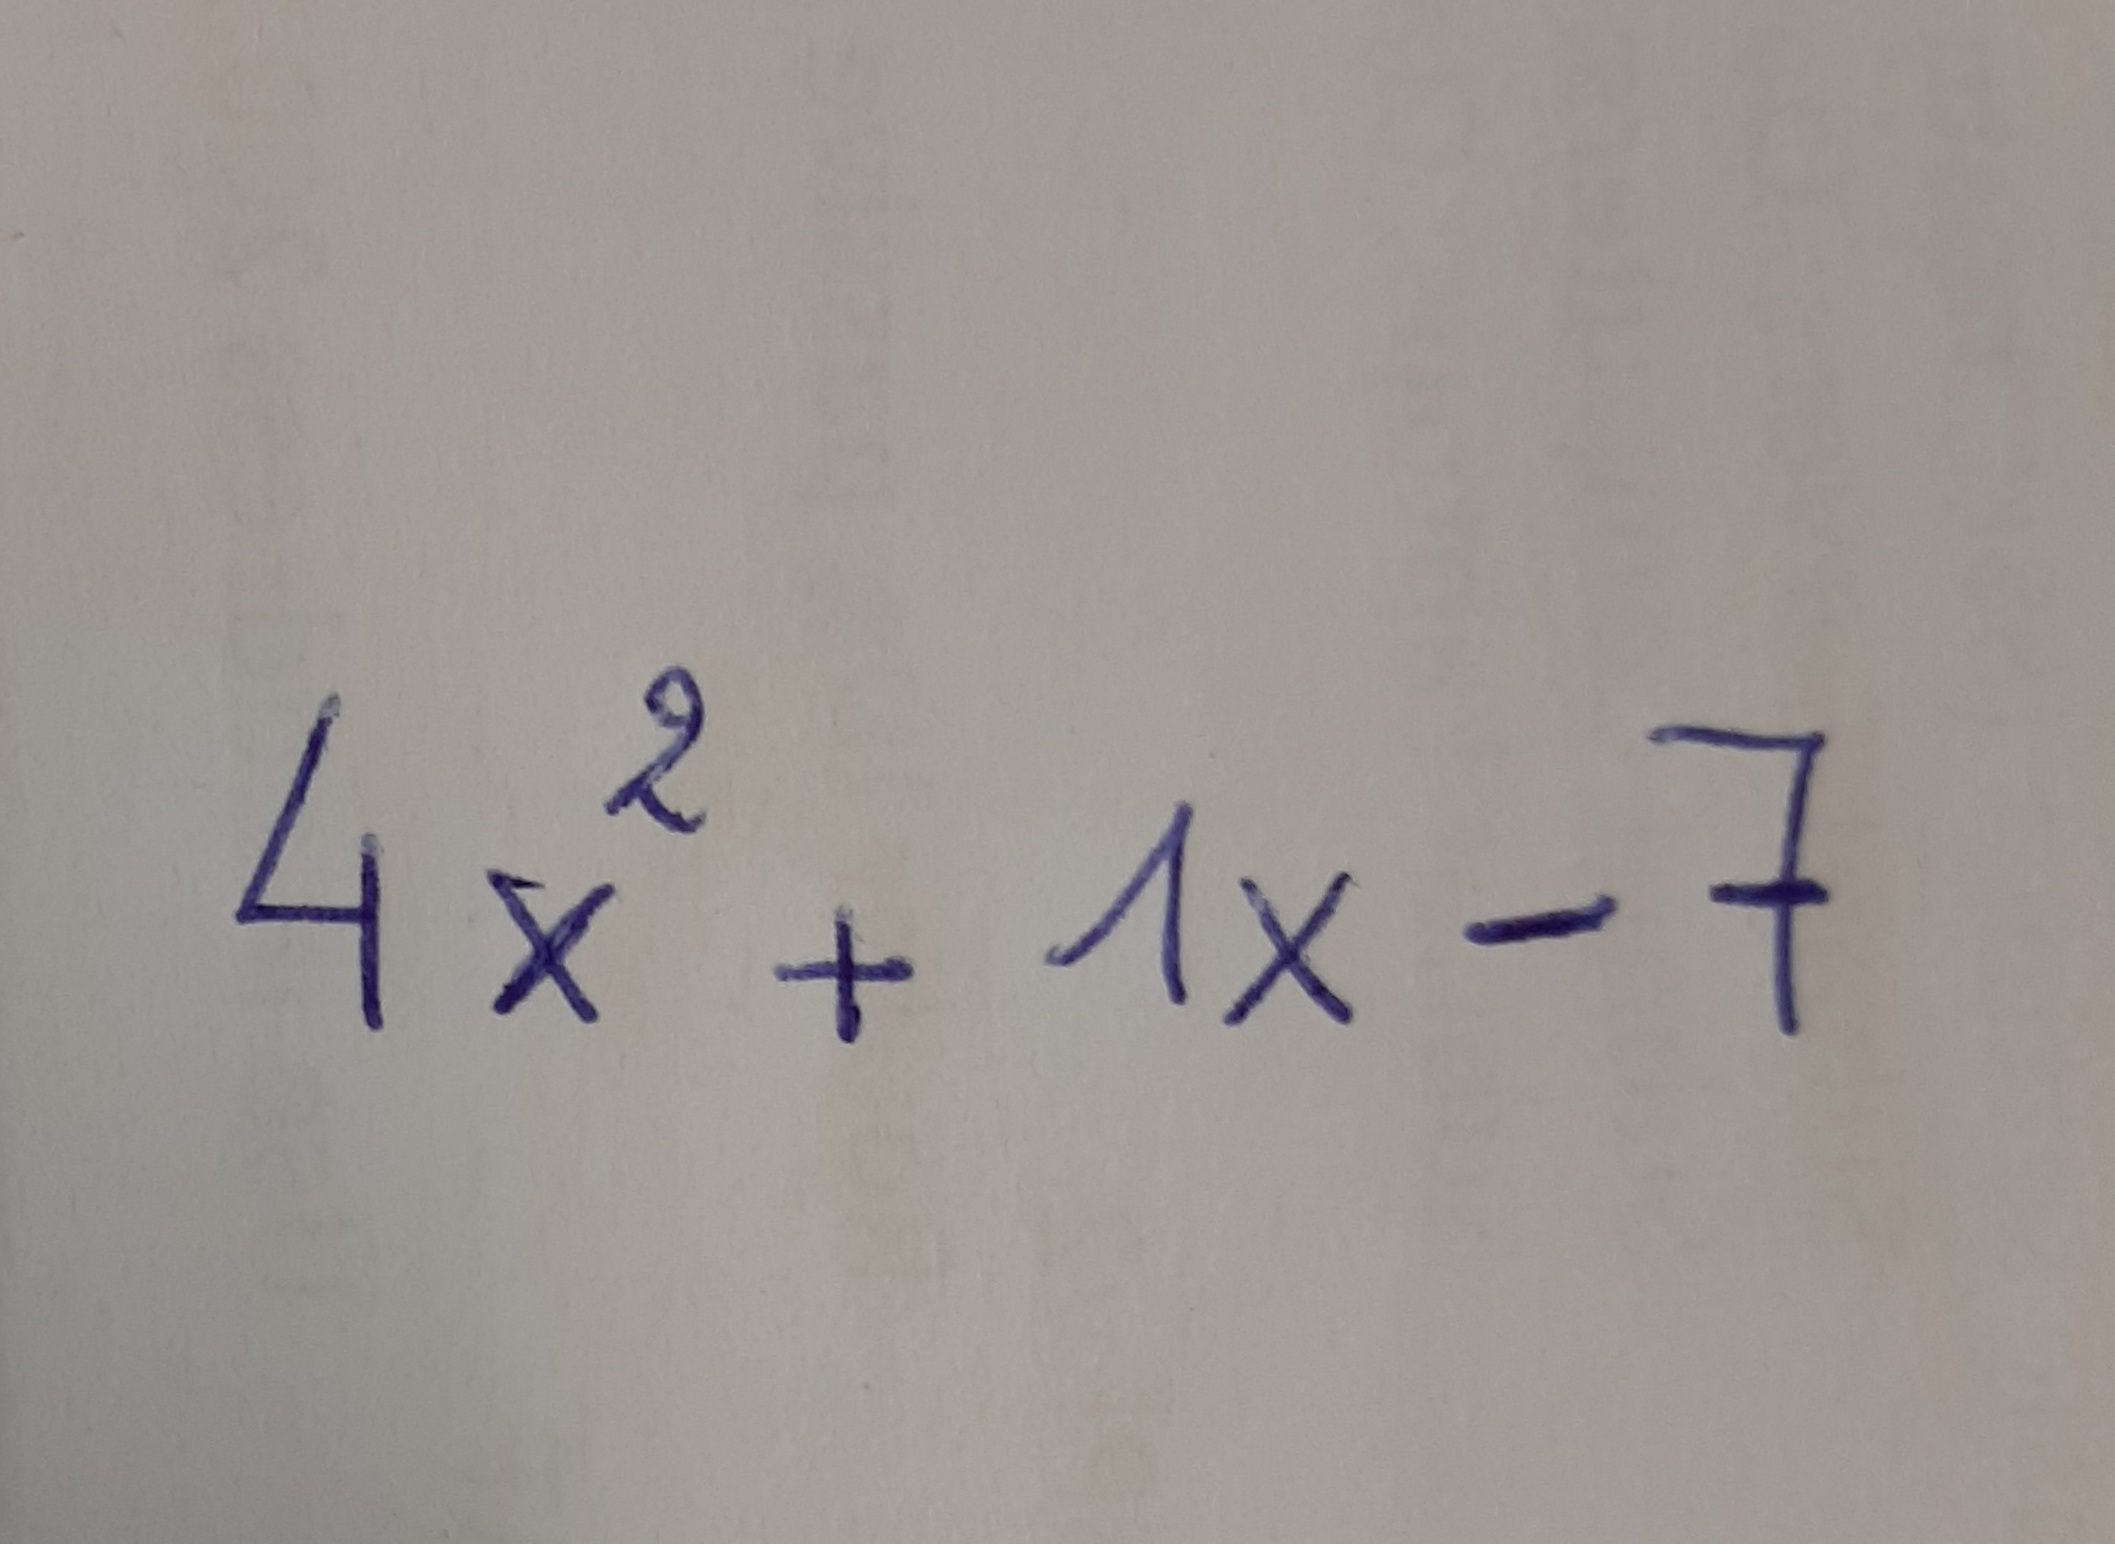 4x² + 1x - 7